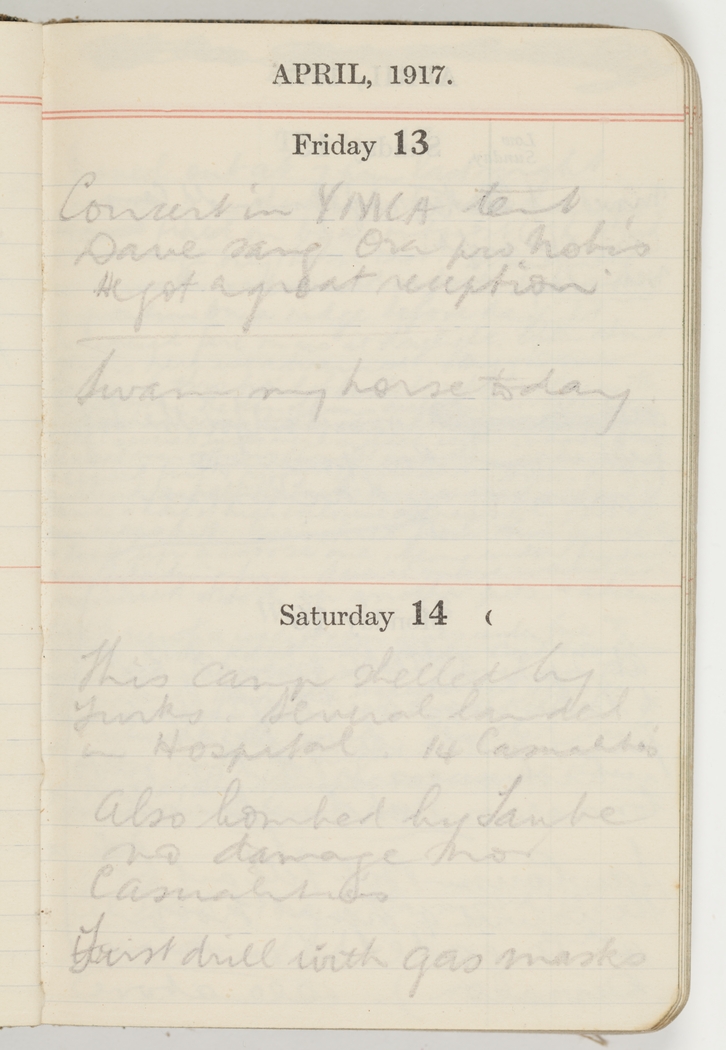 APRIL, 1917.
Friday 13
Concert in YMCA tent
Dave sang Ora pro Nobis
He got a great reception
Swam my horse today
Saturday 14
This camp shelled by
Turks. Several landed
in Hospital. 14 Casualties
Also bombed by Taube
no damage nor
Casualties
First drill with gas masks